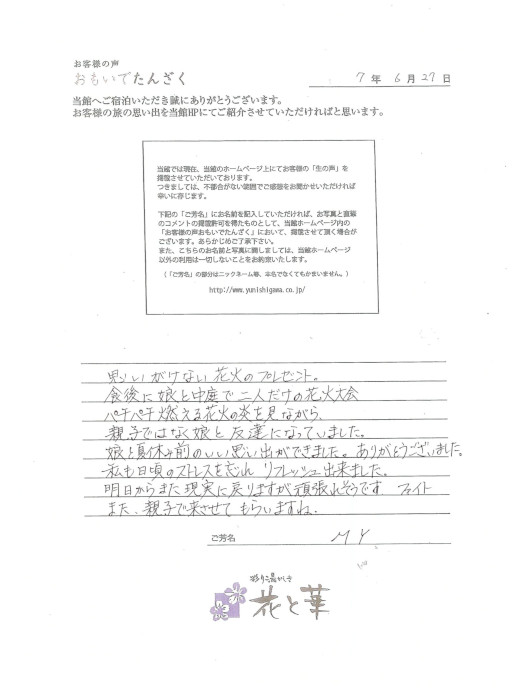 お客様の声
おもいでたんざく
7年 6月27日
当館へご宿泊いただき誠にありがとうございます。
お客様の旅の思い出を当館HPにてご紹介させていただければと思います。
当館では現在、当館のホームページ上にてお客様の「生の声」を
掲載させていただいております。
つきましては、不都合がない範囲でご感想をお聞かせいただければ
幸いに存じます。
下記の「ご芳名」にお名前を記入していただければ、お写真と直筆
のコメントの掲載許可を得たものとして、当館ホームページ内の
「お客様の声おもいでたんざく」において、掲載させて頂く場合が
ございます。あらかじめご了承下さい。
また、こちらのお名前と写真に関しましては、当館ホームページ
以外の利用は一切しないことをお約束いたします。
（「ご芳名」の部分はニックネーム等、本名でなくてもかまいません。）
http://www.yunishigawa.co.jp/
思いがけない花火のプレゼント。
食後に娘と中庭で二人だけの花火大会
パチパチ燃える花火の炎を見ながら、
親子ではなく娘と友達になっていました。
娘と夏休み前のいい思い出ができました。ありがとうございました。
私も日頃のストレスを忘れ リフレッシュ出来ました。
明日からまた現実に戻りますが頑張れそうです ファイト
また、親子で来させて もらいますね。
ご芳名 M Y
彩り湯かしき
花と華